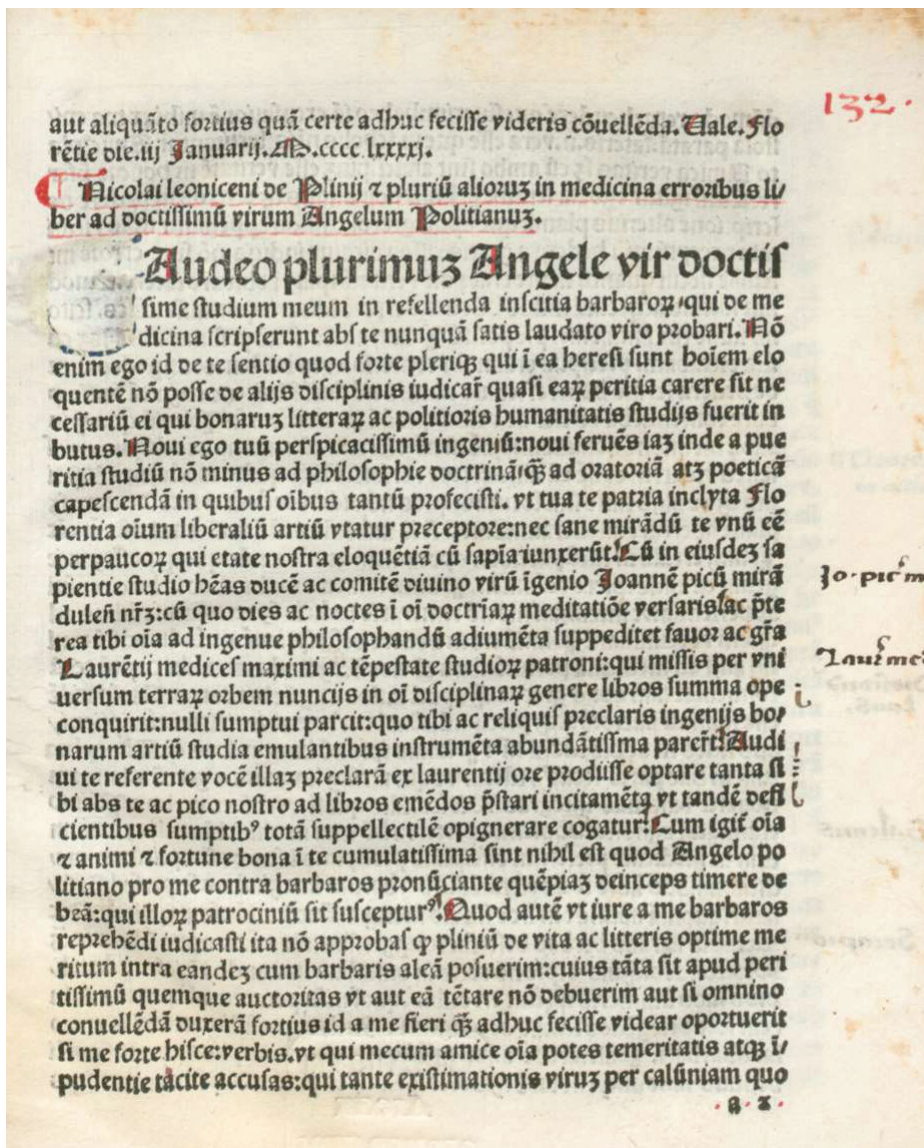 132.
aut aliquãto fortius quã certe adhuc fecisse videris cõuellẽda. Uale. Flo
rẽtie die. iij Januarij. M. cccc lxxxxj.
Nicolai leoniceni de Plinij ⁊ pluriũ alioruꝫ in medicina erroribus li/
ber ad doctissimũ virum Angelum Politianuꝫ.
Audeo plurimuꝫ Angele vir doctis
sime studium meum in refellenda inscitia barbaroꝝ, qui de me
dicina scripserunt abs te nunquã satis laudato viro probari. Nõ
enim ego id de te sentio quod forte pleriqꝫ qui ĩ ea heresi sunt hoĩem elo
quentẽ nõ posse de alijs disciplinis iudicar̃ quasi eaꝝ peritia carere sit ne
cessariũ ei qui bonaruꝫ litteraꝝ ac politioris humanitatis studijs fuerit in
butus. Noui ego tuũ perspicacissimũ ingeniũ: noui feruẽs iaꝫ inde a pue
ritia studiũ nõ minus ad philosophie doctrinã, qꝫ̃ ad oratoriã atꝫ poeticã
capescendã in quibus oĩbus tantũ profecisti. vt tua te patria inclyta Flo
rentia oĩum liberaliũ artiũ vtatur preceptore: nec sane mirãdũ te vnũ eẽ
perpaucoꝝ qui etate nostra eloquẽtiã cũ sapĩa iunxerũt. Cũ in eiusdeꝫ sa
pientie studio hẽas ducẽ ac comitẽ diuino virũ ĩgenio Joannẽ picũ mirã
duleñ nr̃ꝫ: cũ quo dies ac noctes ĩ oĩ doctrĩaꝝ meditatiõe versaris, ac p̃te
rea tibi oĩa ad ingenue philosophandũ adiumẽta suppeditet fauor ac gr̃a
Laurẽtij medices maximi ac tẽpestate studioꝝ patroni: qui missis per vni
uersum terraꝝ orbem nuncijs in oĩ disciplinaꝝ genere libros summa ope
conquirit: nulli sumptui parcit: quo tibi ac reliquis preclaris ingenijs bo/
narum artiũ studia emulantibus instrumẽta abundãtissma parcr̃t. Audi
ui te referente vocẽ illaꝫ preclarã ex laurentij ore prodiisse optare tanta si
bi abs te ac pico nostro ad libros emẽdos p̃stari incitamẽta vt tandẽ defi
cientibus sumptibꝰ totã suppellectilẽ opignerare cogatur. Cum igit̃ oĩa
⁊ animi ⁊ fortune bona ĩ te cumulatissima sint nihil est quod Angelo po
litiano pro me contra barbaros pronũciante quẽpiaꝫ deinceps timere de
beã: qui illoꝝ patrociniũ sit susceptur⁹. Quod autẽ vt iure a me barbaros
reprehẽdi iudicasti ita nõ approbas ꝙ pliniũ de vita ac litteris optime me
ritum intra eandeꝫ cum barbaris aleã posuerim: cuius tãta sit apud peri
tissimũ quemque auctoritas vt aut eã tẽtare nõ debuerim aut si omnino
conuellẽdã duxerã fortius id a me fieri qꝫ̃ adhuc fecisse videar oportuerit
si me forte hisce: verbis. vt qui mecum amice oĩa potes temeritatis atqꝫ ĩ/
pudentie tacite accusas: qui tante existimationis viruꝫ per calũniam quo
Jo. pic m